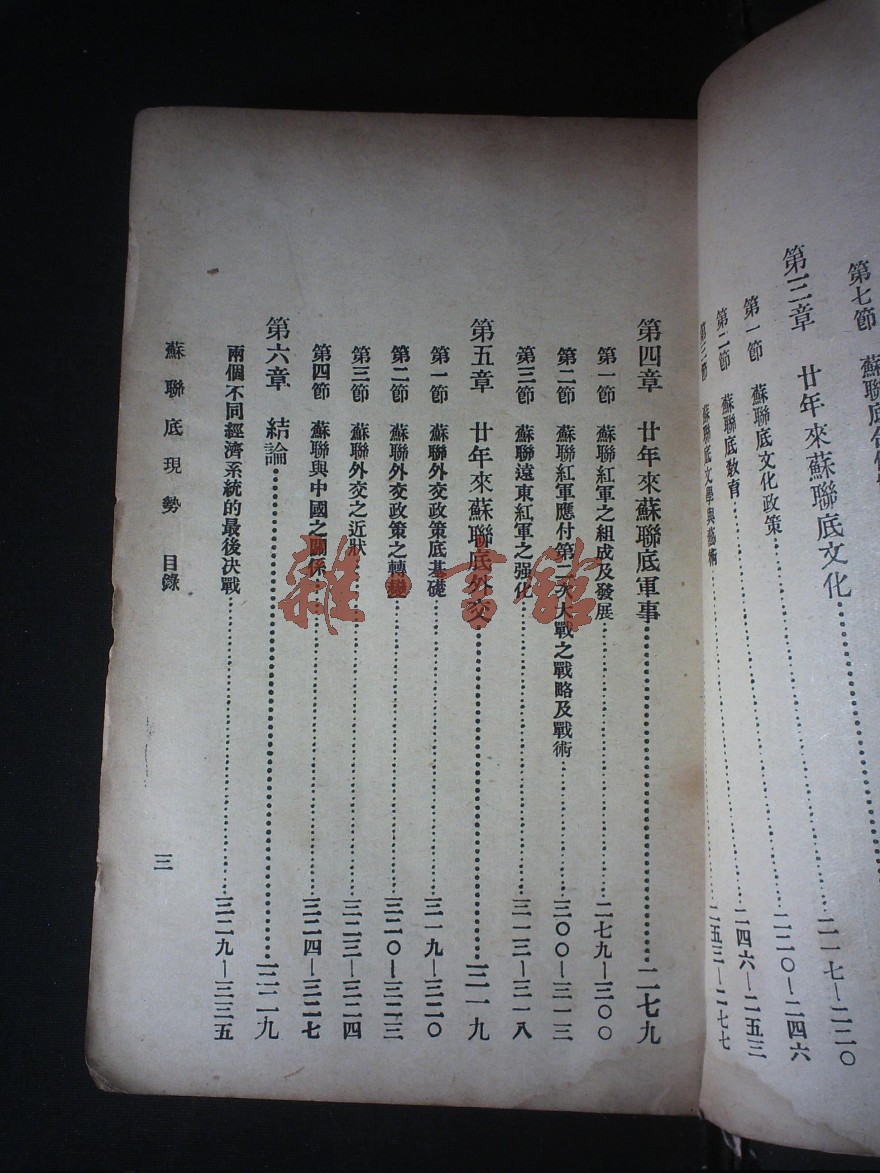 第七節　蘇聯底
第三章　廿年來蘇聯底文化…………
第一節　蘇聯底文化政策…………二一七—二二〇
第二節　蘇聯底教育…………二二〇—二四六
第三節　蘇聯底文學與藝術…………二四六—二五三
二五三—二七七
第四章　廿年來蘇聯底軍事…………二七九
第一節　蘇聯紅軍之組成及發展…………二七九—三〇〇
第二節　蘇聯紅軍應付第二次大戰之戰略及戰術…………三〇〇—三一三
第三節　蘇聯遠東紅軍之强化…………三一三—三一八
第五章　廿年來蘇聯底外交…………三一九
第一節　蘇聯外交政策底基礎…………三一九—三二〇
第二節　蘇聯外交政策之轉變…………三二〇—三二三
第三節　蘇聯外交之近狀…………三二三—三二四
第四節　蘇聯與中國之關係…………三二四—三二七
第六章　結論…………三二九
兩個不同經濟系統的最後決戰…………三二九—三三五
蘇聯底現勢　目錄
三
雜·書館